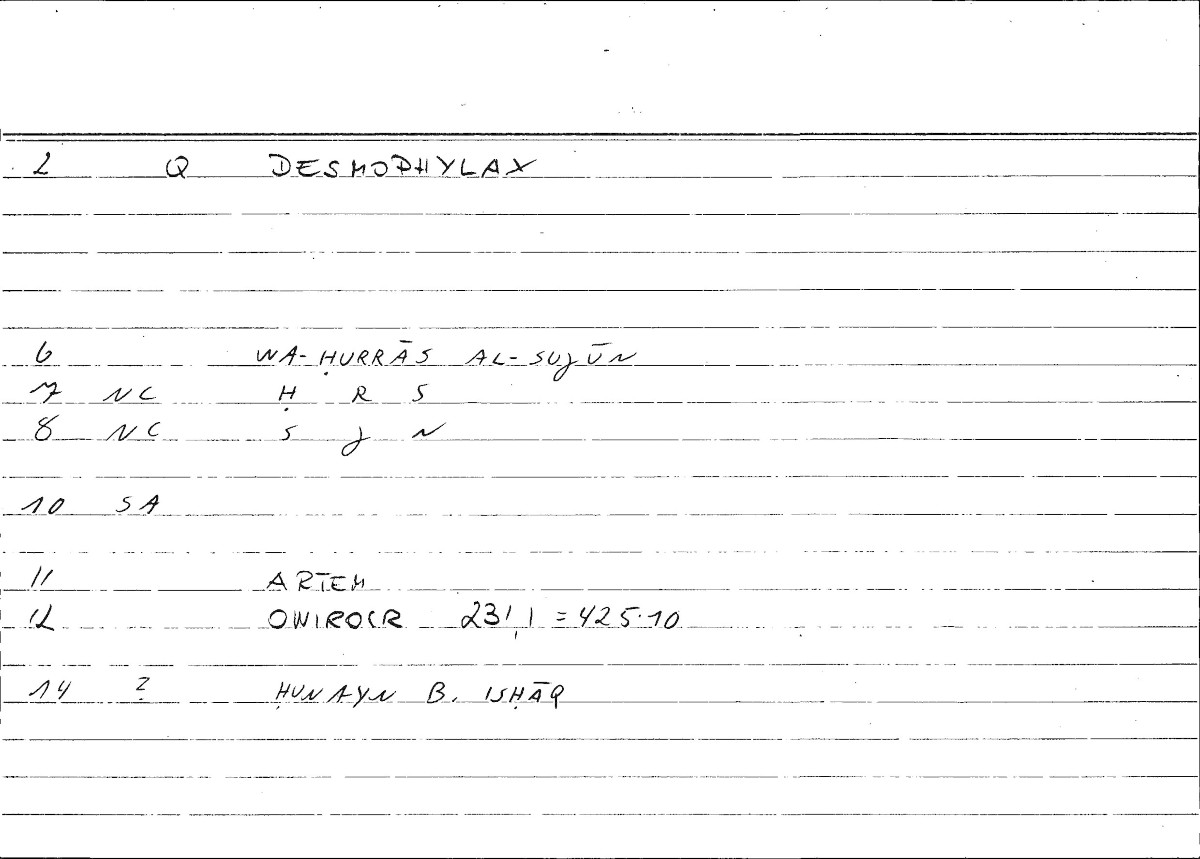 2 Q DESMOPHYLAX
6 WA-ḤURRĀS AL-SUJŪN
7 NC Ḥ R S
8 NC S J N
10 SA
11 ARTEM
12 ONIROCR 231,1 = 425.10
14 ? ḤUNAYN B. ISḤĀQ